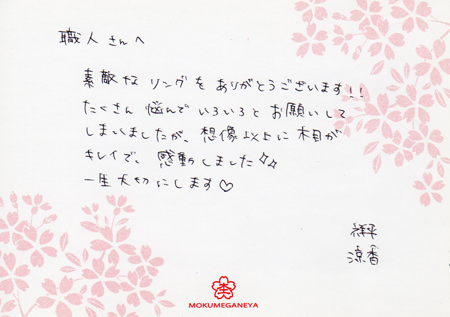 職人さんへ
素敵なリングをありがとうございます!!
たくさん悩んでいろいろとお願いして
しまいましたが、想像以上に木目が
キレイで、感動しました✧✧
一生大切にします♡
祥平
涼香
MOKUMEGANEYA